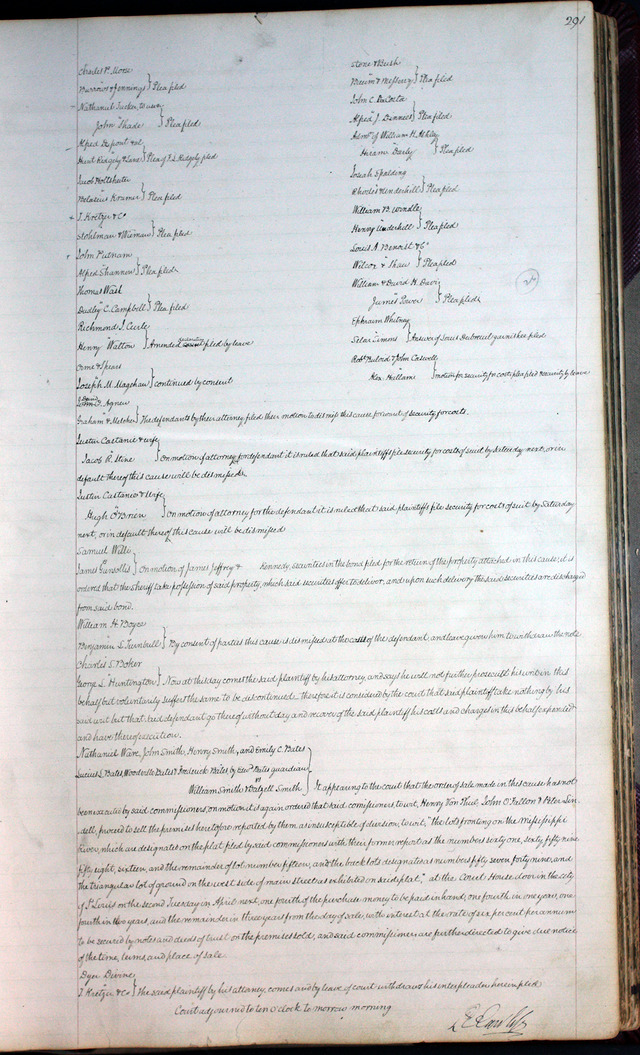 291
Charles P. Morse
Burrows & Jennings } Plea filed
Nathaniel Tucker, to use
John Shade } Plea filed
Alfred Dupont et al
Hunt Ridgely & Lane } Plea of F. L. Ridgely filed
Jacob Holtshuter
Belasius Kramer } Plea filed
J. Kretzer & Co
Stohlman & Wieman } Plea filed
John Putnam
Alfred Shannon } Plea filed
Thomas Wash
Dudley C. Campbell } Plea filed
Richmond J. Curle
Henry Walton } Amended filed by leave
Come & Spears
Joseph M. Magehan } continued by consent
F. Agnew
Graham & Metcher } The defendants by their attorney filed their motion to dismiss this cause for want of security for costs.
Stone & Bush
Bacum & McSherry } Plea filed
John C. DaCosta
Alfred J. Dennees } Plea filed
Admr of William H. Ashley
Hiram Darby } Plea filed
Josiah Spalding
Rhodes & Underhill } Plea filed
William B. Windle
Henry Underhill } Plea filed
Louis A. Benoist & Co
Wilcox & Shaw } Plea filed
William & David H. Davis
James Gower } Plea filed
24
Ephraim Whitney
Silas Simons } Answer of Louis Debreuil garnishee filed
Robt Buford & John Caswell
Alex. Hillam } motion for security for costs filed & security by leave
Justin Castanie & wife
Jacob R. Stine } On motion of attorney for defendant it is ruled that said plaintiffs file security for costs of suit by Saturday next, or in
default thereof this cause will be dismissed.
Justin Castanie & Wife
Hugh O'Brien } On motion of attorney for the defendant it is ruled that said plaintiffs file security for costs of suit by Saturday
next, or in default thereof this cause will be dismissed
Samuel Willi
James Gunsollis } On motion of James Jeffrey & Kennedy, securities in the bond filed for the return of the property attached in this cause, it is
ordered that the Sheriff take possession of said property, which said securities offer to deliver, and upon such delivery the said securities are discharged
from said bond.
William H. Boyce
Benjamin L. Turnbull } By consent of parties this cause is dismissed at the costs of the defendant, and leave given him to withdraw the note
Charles S. Boker
George L. Huntington } Now at this day comes the said plaintiff by his attorney, and says he will not further prosecute his writ in this
behalf but voluntarily suffers the same to be discontinued. therefore it is considered by the court that said plaintiff take nothing by his
said writ but that said defendant go thereof without day and recover of the said plaintiff his costs and charges in this behalf expended
and have thereof execution.
Nathaniel Ware, John Smith, Henry Smith, and Emily C. Bates
Lucius L. Bates, Woodville Bates & Frederick Bates, by Edwd Bates guardian
vs
William Smith & Datzell Smith } It appearing to the court that the order of sale made in this cause has not
been executed by said commissioners, on motion, it is again ordered that said comissioners to wit, Henry Von Phul, John O'Fallon & Peter Lin
dell, proceed to sell the premises heretofore reported by them as insusceptible of division, to wit, "the lots fronting on the Mississippi
River, which are designated on the plat filed by said commissioners with their former report as the numbers sixty one, sixty, fifty nine
fifty eight, sixteen, and the remainder of lot number fifteen, and the back lots designated as numbers fifty seven, forty nine, and
the triangular lot of ground on the west side of main street as exhibited on said plat," at the Court House door in the city
of St Louis on the second Tuesday in April next, one fourth of the purchase money to be paid in hand, one fourth in one year, one
fourth in two years, and the remainder in three years from the day of sale, with interest at the rate of six per cent per annum
to be secured by notes and deeds of trust on the premises sold, and said commissioners are further directed to give due notice
of the time, terms, and place of sale.
Dyer Divine
J. Kretzer & Co } The said plaintiff by his attorney, comes and by leave of court withdraws his interpleader herein filed
Court adjourned to ten o'clock to morrow morning